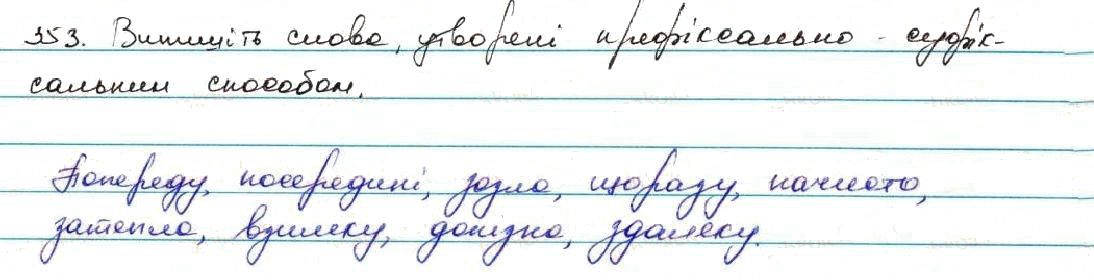 353. Випишіть слова, утворені префіксально - суфік-
сальним способом.
Попереду, посередині, зозла, щоразу, начисто,
затепла, взимку, допізна, здалеку.